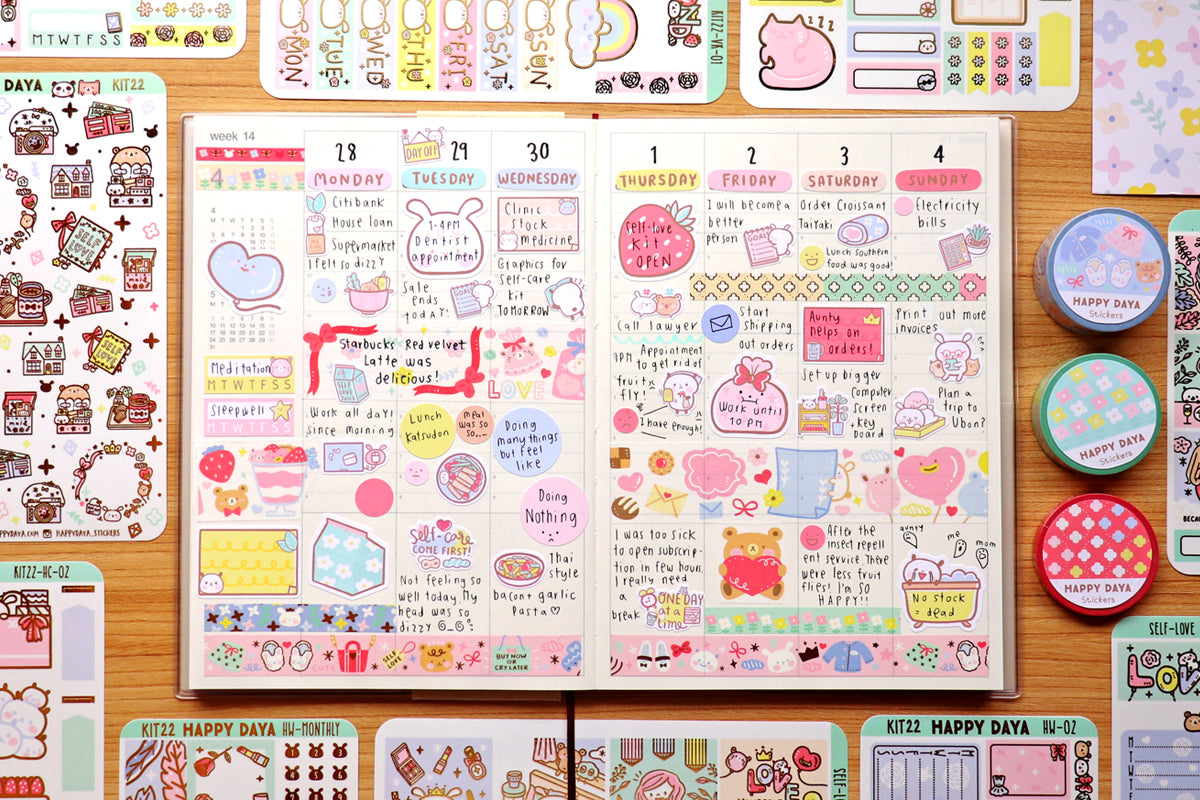 MTWTFSS
MON
TUE
WED
THU
FRI
SAT
SUN
KIT22-WK-01
zzz
DAYA
KIT22
SELF LOVE
SELF LOVE
HAPPYDAYA.COM
HAPPYDAYA_STICKERS
week 14
4
28
DAY OFF
29
30
MONDAY
TUESDAY
WEDNESDAY
Citibank
House loan
Supermarket
I felt so dizzy
1-4PM
Dentist
appointment
Sale
ends
today!
GOALS
Clinic
stock
medicine
Graphics for
Self-care
kit
TOMORROW
4
M T W T F S S
5
M T W T F S S
Meditation
MTWTFSS
Sleepwell
MTWTFSS
Starbucks Red velvet
Latte was
delicious!
LOVE
Work all day!
since morning
Lunch
Katsudon
Meal
was so
so...
Doing
many things
but feel
like
Doing
Nothing
Self-care
COME FIRST!
Not feeling so
well today. My
head was so
dizzy @_@
Thai
style
bacon + garlic
Pasta ♡
SELF LOVE
BUY NOW
OR
CRY LATER
1
2
3
4
THURSDAY
FRIDAY
SATURDAY
SUNDAY
Self-love
kit
OPEN
I will become a
better
person
GOALS
Order Croissant
Taiyaki
Lunch southern
food was good!
Electricity
bills
Call lawyer
1PM Appointment
to get rid of
fruit
fly!
I have enough!
Start
Shipping
out orders
Work until
10 PM
Aunty
helps on
orders!
Set up bigger
Computer
screen
+ key
board
Print out more
invoices
Plan a
trip to
Ubon?
I was too sick
to open subscrip-
tion in few hours.
I really need
a
break
ONE DAY
at a
time
After the
insect repell
ent service. There
were less fruit
flies! I'm SO
HAPPY!!
aunty
me
mom
No stock
= dead
HAPPY DAYA
Stickers
HAPPY DAYA
Stickers
HAPPY DAYA
Stickers
KIT22-HC-02
KIT22 HAPPY DAYA HW-MONTHLY
LOVE
SELF-
KIT22 HAPPY DAYA HW-02
SELF-LOVE
LOV